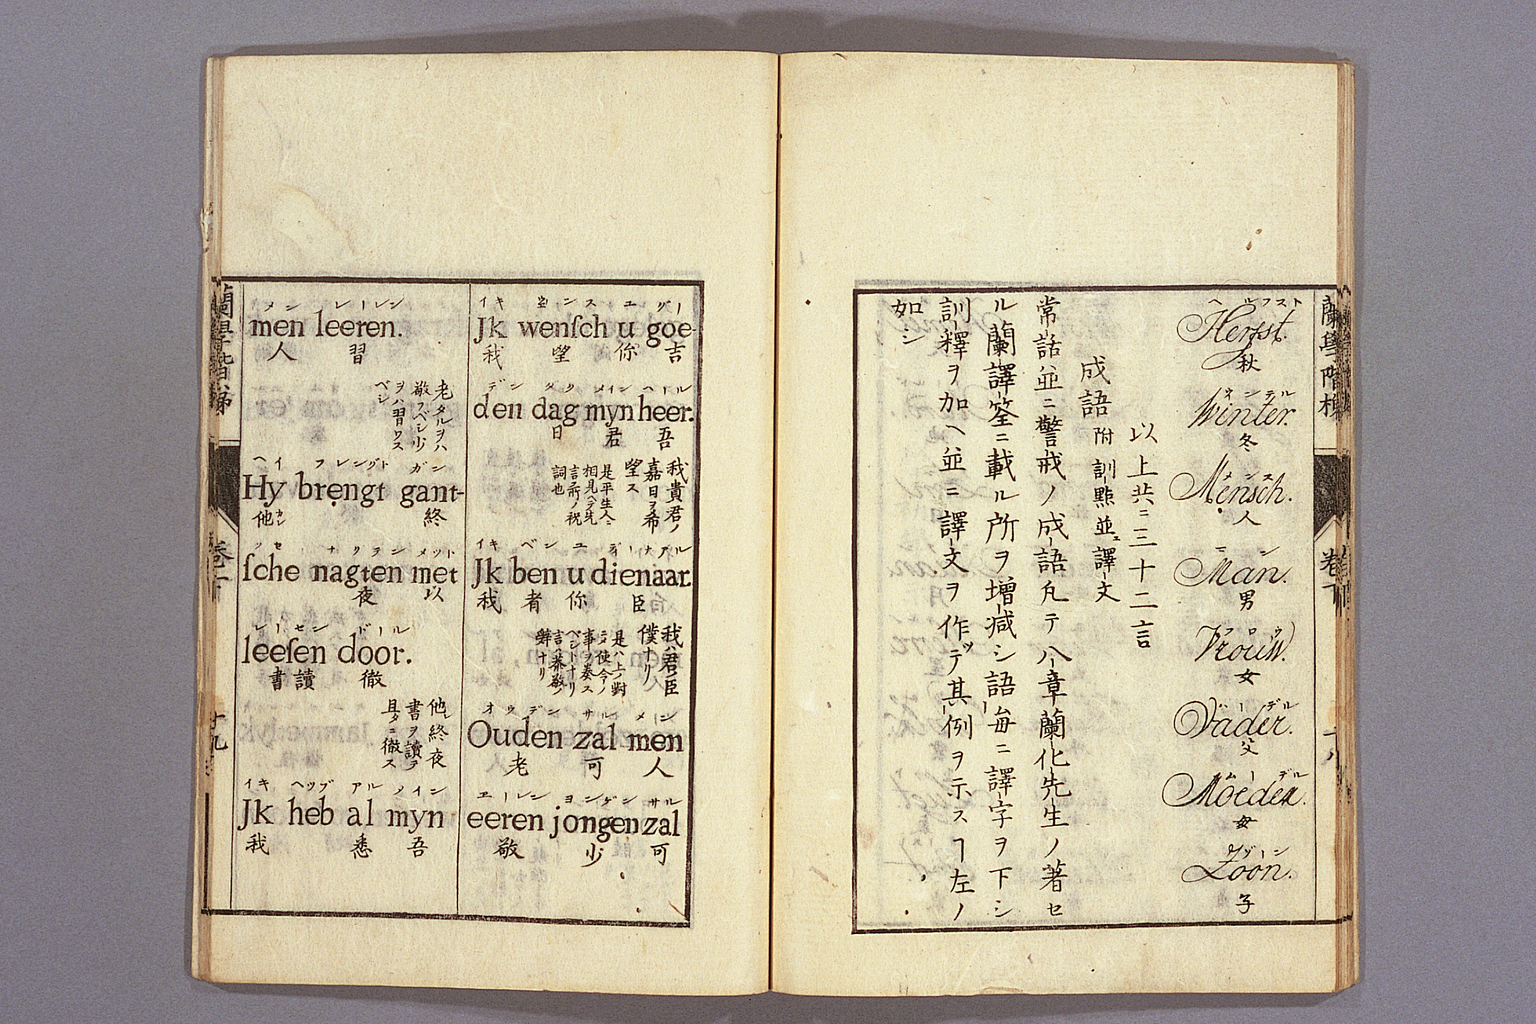 蘭學階梯
卷下
ヘルフスト
Herfst.
秋
ウインテル
Winter.
冬
メンス
Mensch.
人
マン
Man.
男
フロウウ
Vrouw.
女
バーデル
Vader.
父
ムーデル
Moeder.
母
ゾーン
Zoon.
子
以上共ニ三十二言
成語附訓點並ニ譯文
常話並ニ警戒ノ成語凡テ八章蘭化先生ノ著セ
ル蘭譯筌ニ載ル所ヲ增減シ語每ニ譯字ヲ下シ
訓釋ヲ加ヘ並ニ譯文ヲ作テ其例ヲ示スヿ左ノ
如シ
イキ ウェンス ユ グー
Jk wenſch u goe-
我 望 你 吉
デン ダク メイン ヘール
den dag myn heer.
日 君 吾
我貴君ノ
嘉日ヲ希
望ス
是平生人ニ
相見ヘテ先
言所ノ祝
詞也
イキ ベン ユ ディーナアル
Jk ben u dienaar.
我 者 你 臣
我ハ君ノ臣
僕ナリ
是ハ上ノ對
言ノ恭敬ノ
辭ナリ
オウデン サル メン
Ouden zal men
老 可 人
エーレン ヨンゲン サル
eeren jongen zal
敬 少 可
メン レーレン
men leeren.
人 習
老タルヲハ
敬フベシ少
ヲハ習ワス
ベシ
ヘイ フレングト ガン
Hy brengt gant-
他 終
ッセ ナクテン メット
ſche nagten met
夜 以
レーセン ドール
leeſen door.
書 讀 徹
他レ終夜
書ヲ讀テ
旦タニ徹ス
イキ ヘッブ アル メイン
Jk heb al myn
我 悉 吾
蘭學階梯
卷下
十九